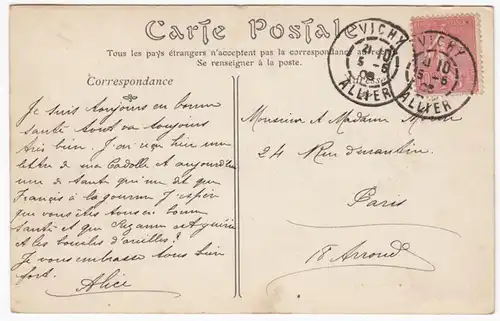 Carte Postale
Tous les pays étrangers n'acceptent pas la correspondance au
Se renseigner à la poste.
Correspondance
VICHY
21 10
5 -6
ALLIER
VICHY
10
5 -6
ALLIER
Je suis toujours en bonne
santé tout va toujours
très bien. J'ai reçu hier une
lettre de ma et aujourd'hui
une de tante qui me dit que
François à la gourme J'espère
que vous êtes tous en bonne
santé et que Suzanne
et les boucles d'oreilles?
Je vous embrasse tous bien
fort.
Alice
Monsieur et Madame
24 Rue
Paris
18 Arrond